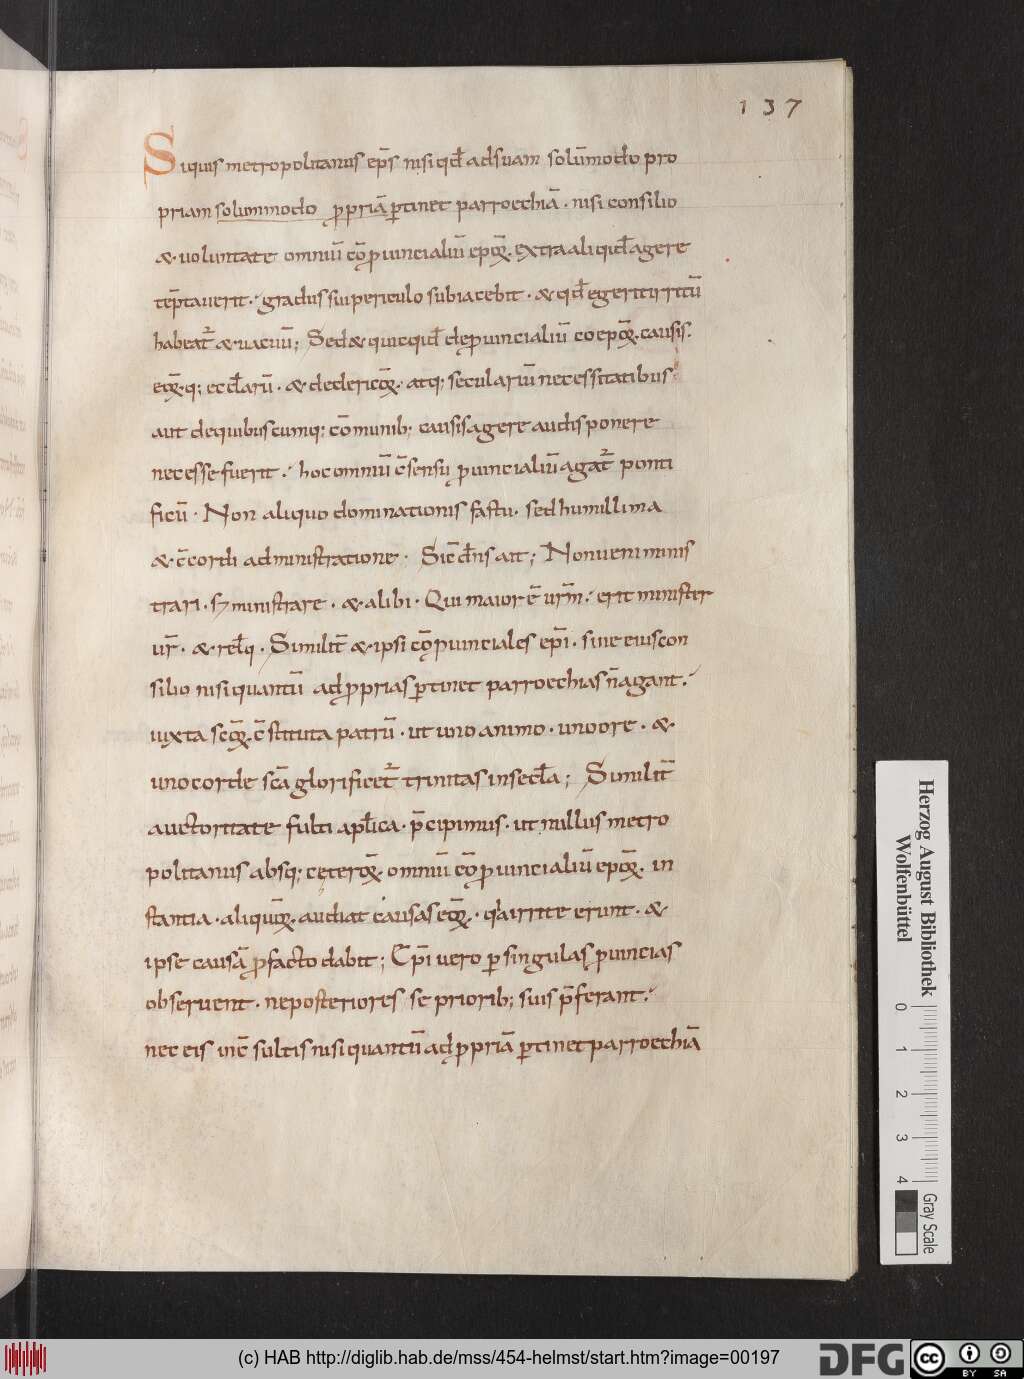 137
Siquis metropolitanus ep̄s nisi qd̄ adsuam solūmodo pro
priam solummodo ꝓpriā ꝑtinet parroechiā · nisi consilio
& uoluntate omniū cōꝓuincialiū epoꝝ. extra aliqid̄ agere
tēptauerit. gradus sui periculo subiacebit · & qd̄ egerit irritū
habeat᷑ & uacuū; Sed & quicqid̄ deꝓuincialiū coepoꝝ. causis.
eoꝝ. q; eccl̄arū. & declericoꝝ. atq; seculariū necessitatibus
aut dequibuscumq; cōmunib; causis agere audisponere
necesse fuerit. hoc omniū c̄sensu ꝓuincialiū agat᷑ ponti
ficū · Non aliquo dominationis fastu. sed humillima
& c̄cordi administratione · Sic̄ dn̄s ait; Non ueni minis
trari · s; ministrare · & alibi · Qui maior ē ur̄m. erit minister
ur̄ · & rel̄q · Similit̄ & ipsi cōꝓuinciales ep̄i · sine eius con
silio nisi quantū adꝓprias ꝑtinet parroechias n̄ agant.
iuxta scoꝝ. c̄stituta patrū · ut uno animo · uno ore · &
uno corde sc̄a glorificet᷑ trinitas insecl̄a; Similit̄
auctoritate fulti apl̄ica · p̄cipimus · ut nullus metro
politanus absq; cęteroꝝ. omniū cōꝓuincialiū epoꝝ. in
stantia · aliquoꝝ. audiat causas eoꝝ. · q̄a irrite erunt · &
ipse causā ꝓfacto dabit; Ep̄i uero ꝑ singulas ꝓuincias
obseruent · ne posteriores se priorib; suis p̄ferant.
nec eis inc̄sultis nisi quantū adꝓpriā ꝑtinet parroechiā
Herzog August Bibliothek
Wolfenbüttel
0 1 2 3 4
Gray Scale
(c) HAB http://diglib.hab.de/mss/454-helmst/start.htm?image=00197
DFG
cc BY SA